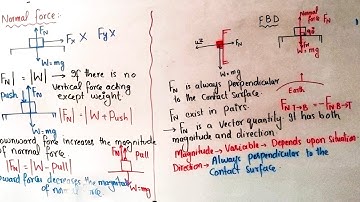 Normal force:
F_N
F_x X F_y X
W=mg
|F_N| = |W| → If there is no
vertical force acting
except weight.
Push
F_N
|F_N| = |W + Push|
W=mg
downward force increases the magnitude
of normal force.
|F_N| = |W-Pull|
Pull
F_N
W=mg
force decreases the magnitude
FBD
F_N
W=mg
Normal
force F_N
90°
W=mg
Earth
F_N is always perpendicular
to the Contact Surface.
F_N exist in pairs.
F_N T→B = -F_N B→T
F_N → is a Vector quantity. It has both
magnitude and direction.
Magnitude → Variable → Depends upon Situation.
Direction → Always perpendicular to the
Contact Surface.